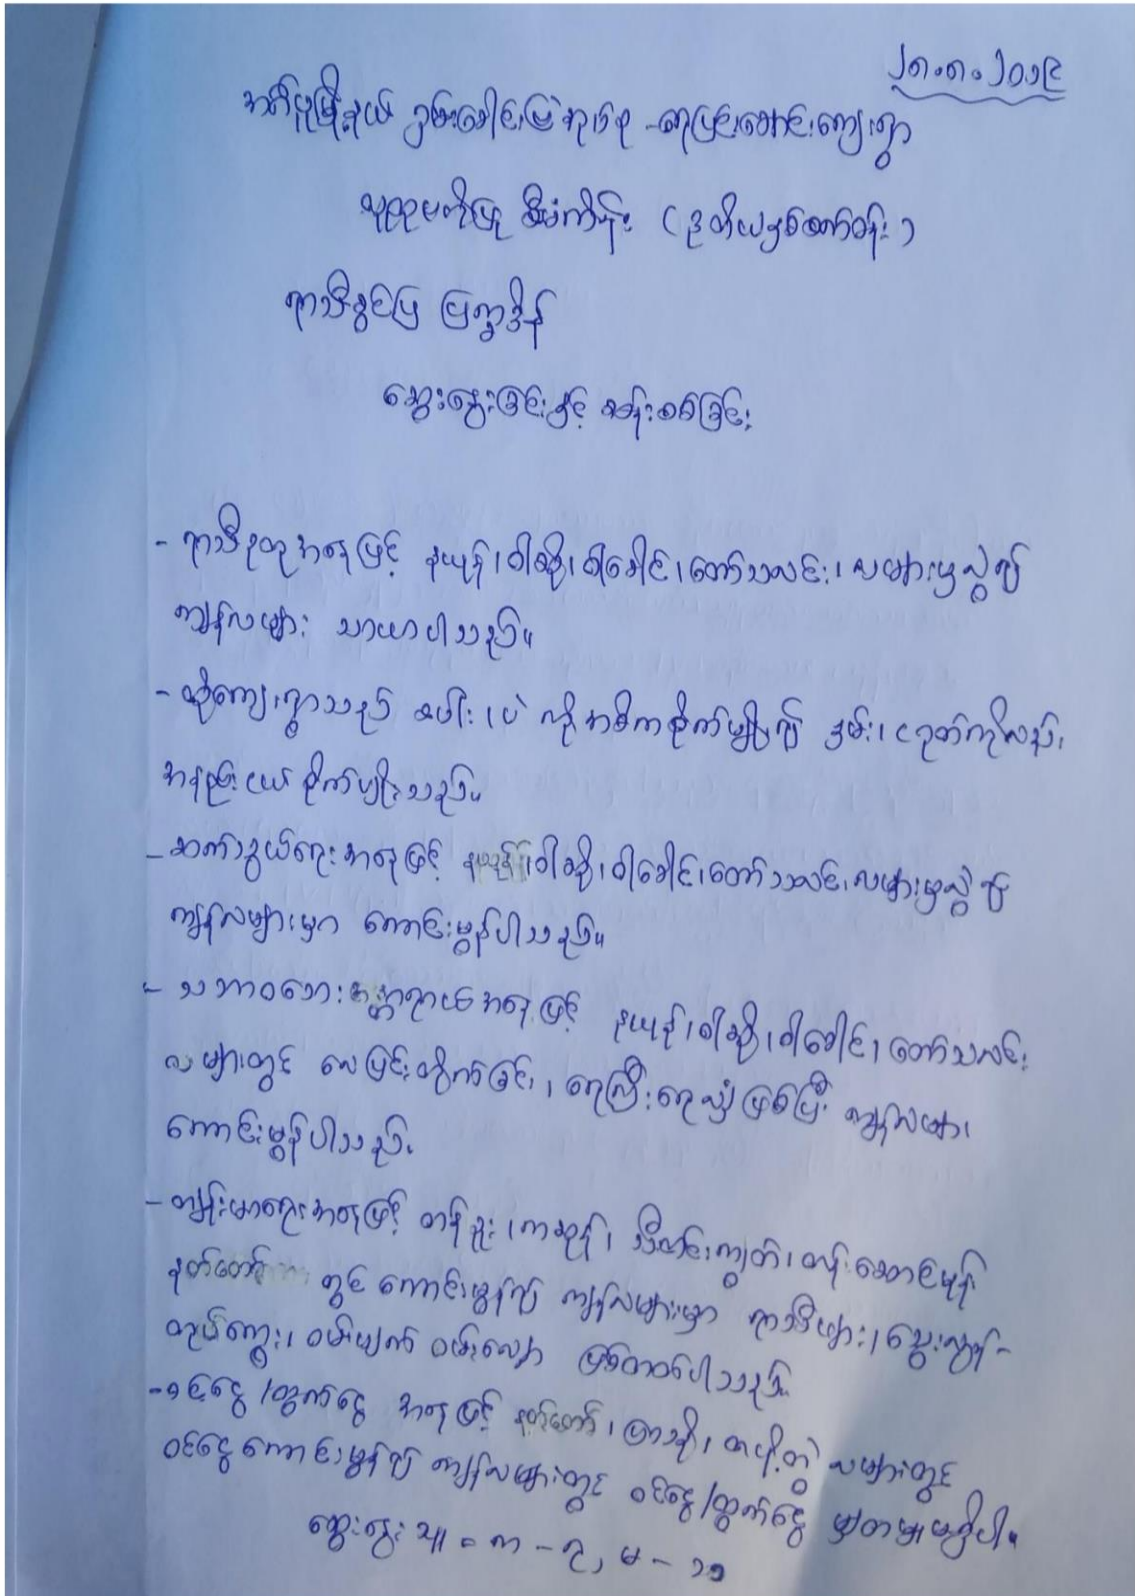 ၂၈.၈.၂၀၁၉
အင်္ဂပူမြို့နယ် ညှမ်းခေါင်းမြဲအုပ်စု - ရေပြင်းအောင်းကျေးရွာ
လူထုဗဟိုပြု စီမံကိန်း (ဒုတိယနှစ်ဝက်တန်း)
ရာသီခွင်ပြ ပြက္ခဒိန်
ဆွေးနွေးခြင်းနှင့် ဆန်းစစ်ခြင်း
- ရာသီဥတုအနေဖြင့် နယုန်၊ ဝါဆို၊ ဝါခေါင်၊ တော်သလင်း၊ လများမှလွဲ၍
ကျန်လများ သာယာပါသည်။
- ထိုကျေးရွာသည် စပါး၊ ပဲ ကို အဓိကစိုက်မျိုး၍ နှမ်း၊ ငရုတ်ကိုလည်း
အနည်းငယ် စိုက်ပျိုးသည်။
- ဆက်သွယ်ရေးအနေဖြင့် နယုန်၊ ဝါဆို၊ ဝါခေါင်၊ တော်သလင်း လများမှလွဲ၍
ကျန်လများမှာ ကောင်းမွန်ပါသည်။
- သဘာဝဘေးအန္တာရာယ်အနေဖြင့် နယုန်၊ ဝါဆို၊ ဝါခေါင်၊ တော်သလင်း
လများတွင် လေပြင်းတိုက်ခြင်း၊ ရေကြီးရေလျှံဖြစ်ပြီး ကျန်လများ
ကောင်းမွန်ပါသည်။
- ကျန်းမာရေးအနေဖြင့် တန်ခူး၊ ကဆုန်၊ သီတင်းကျွတ်၊ တန်ဆောင်မုန်း
နတ်တော် တွင် ကောင်းမွန်၍ ကျန်လများမှာ ရာသီဖျား၊ သွေးလွန်-
တုပ်ကွေး၊ ဝမ်းပျက် ဝမ်းလျှော ဖြစ်တတ်ပါသည်။
- ဝင်ငွေ/ထွက်ငွေ အနေဖြင့် နတ်တော်၊ ပြာသို၊ တပို့တွဲ လများတွင်
ဝင်ငွေကောင်းမွန်၍ ကျန်လများတွင် ဝင်ငွေ/ထွက်ငွေ မျှတမှုမရှိပါ။
ဆွေးနွေးသူ = က - ၇, မ - ၁၁